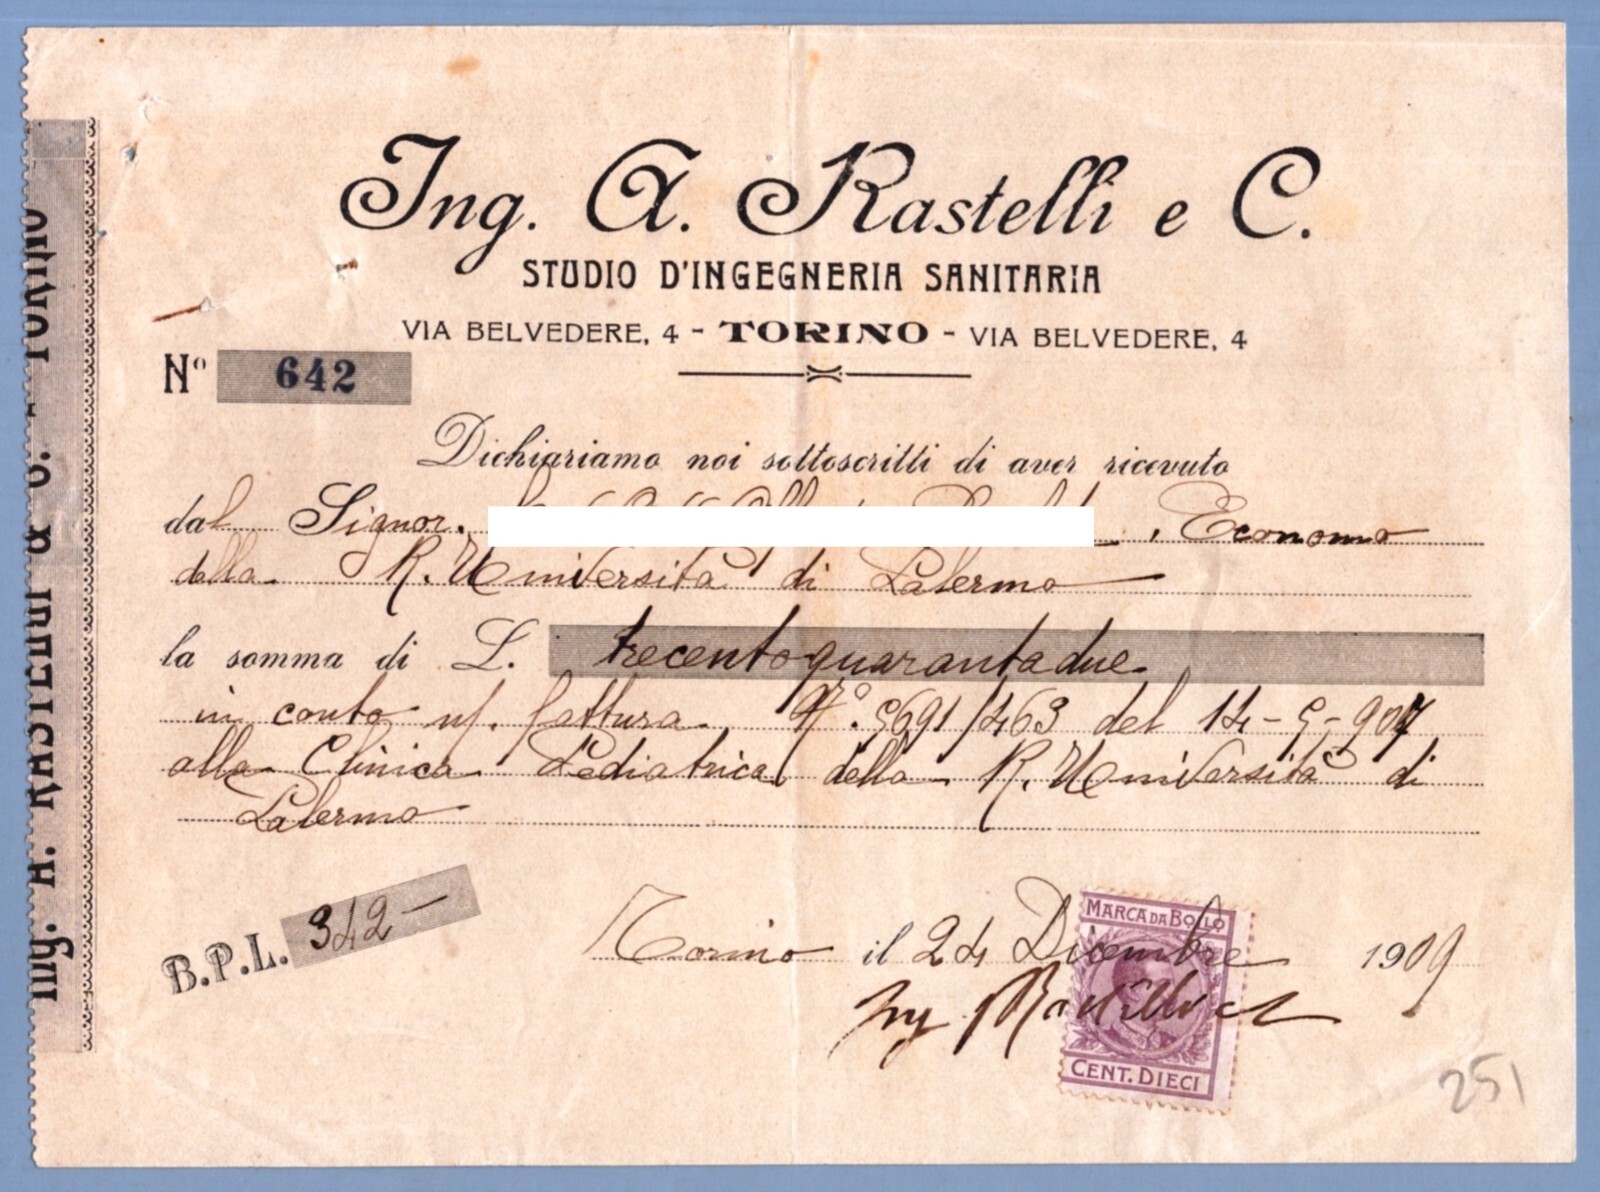 Ing. A. Rastelli e C.
STUDIO D'INGEGNERIA SANITARIA
VIA BELVEDERE, 4 - TORINO - VIA BELVEDERE, 4
Nº 642
Dichiariamo noi sottoscritti di aver ricevuto
dal Signor. , Economo
della R. Università di Palermo
la somma di L. trecentoquarantadue
in conto n/. fattura Nº. 5691/463 del 14-5-907
alla Clinica Pediatrica della R. Università di
Palermo
B.P.L. 342 —
Torino il 24 Dicembre 1909
Ing Rastelli e C
MARCA DA BOLLO
CENT. DIECI
251
Ing. A. RASTELLI & C. - TORINO